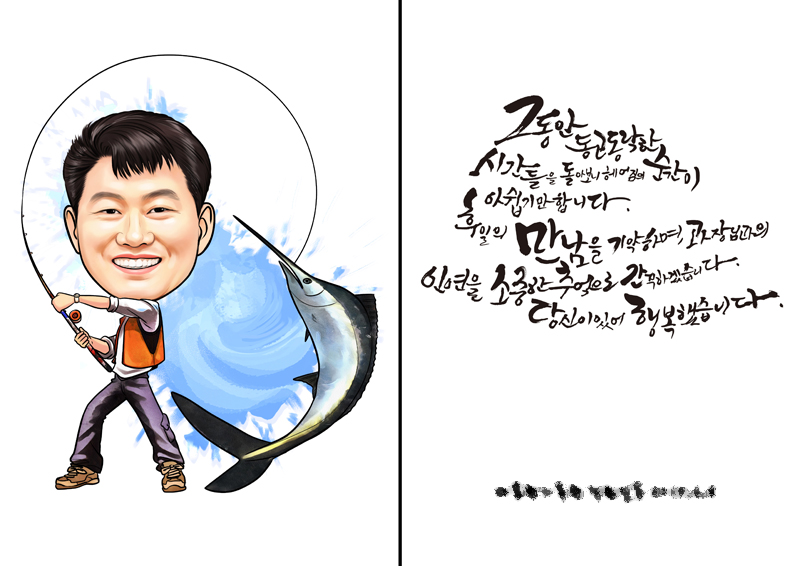 그동안 동고동락한
시간들을 돌아보니 헤어짐의 순간이
아쉽기만 합니다.
훗일의 만남을 기약하며, 공장장님과의
인연을 소중한 추억으로 간직하겠습니다.
당신이 있어 행복했습니다.